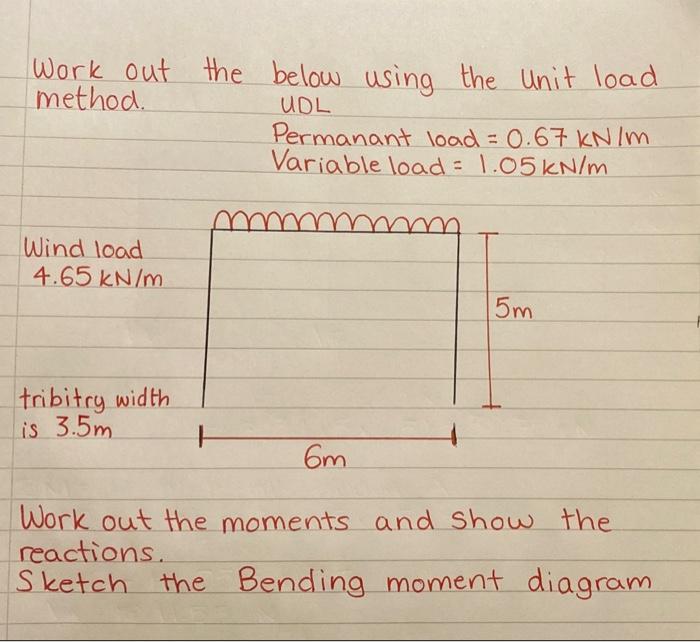 Work out the below using the Unit load
method.
UDL
Permanant load = 0.67 kN/m
Variable load = 1.05 kN/m
Wind load
4.65 kN/m
5m
tribitry width
is 3.5m
6m
Work out the moments and show the
reactions.
Sketch the Bending moment diagram